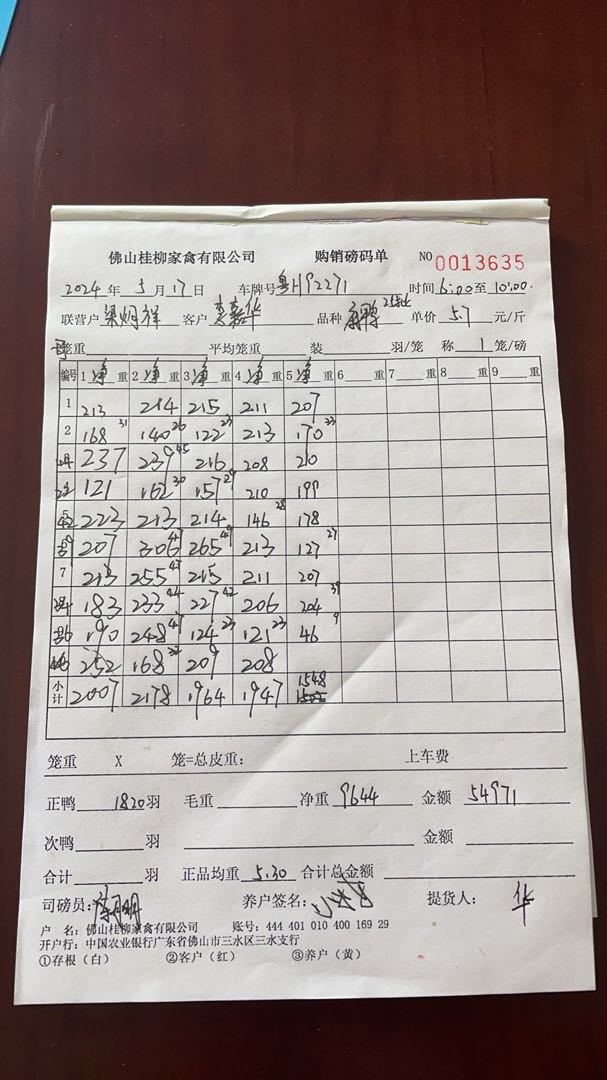 佛山桂柳家禽有限公司 购销磅码单 NO 0013635
2024 年 5 月 17 日 车牌号 粤H92271 时间 6:00 至 10:00.
联营户 梁炳祥 客户 嘉华 品种 单价 5.7 元/斤
笼重 平均笼重 装 羽/笼 称 1 笼/磅
编号 1 净 重 2 净 重 3 净 重 4 净 重 5 净 重 6 重 7 重 8 重 9 重
1 213 214 215 211 207
2 168 31 140 26 122 23 213 170 33
237 239 45 216 208 210
121 162 30 157 29 210 199
223 213 214 146 28 178
207 306 265 213 127 27
7 213 255 215 211 207
183 233 44 227 42 206 204 39
190 248 124 23 121 23 46 9
252 168 32 209 208
小计 2007 2178 1964 1947 1548
笼重 X 笼=总皮重: 上车费
正鸭 1820 羽 毛重 净重 9644 金额 54971
次鸭 羽 金额
合计 羽 正品均重 5.30 合计总金额
司磅员: 养户签名: 提货人: 华
户 名: 佛山桂柳家禽有限公司 账号: 444 401 010 400 169 29
开户行: 中国农业银行广东省佛山市三水区三水支行
①存根（白） ②客户（红） ③养户（黄）